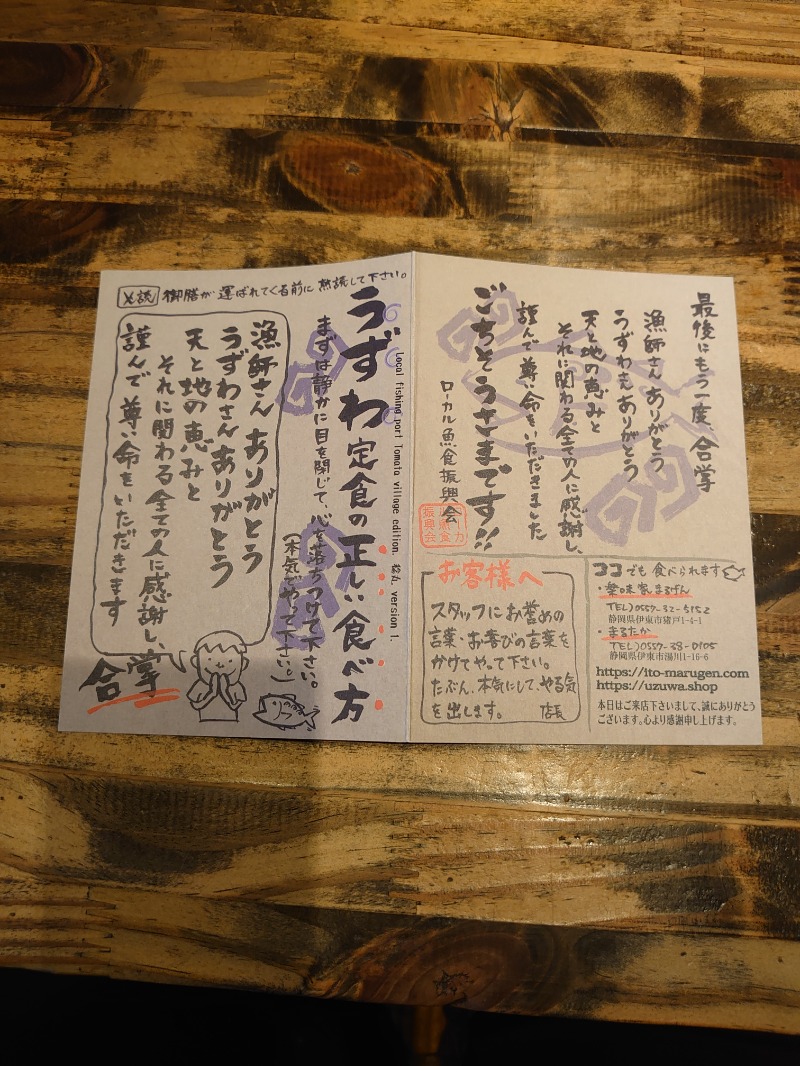 必読 御膳が運ばれてくる前に熟読して下さい。
うずわ定食の正しい食べ方
Local fishing port Tomato village edition. 松丸 version 1.
まずは静かに目を閉じて、心を落ちつけて下さい。
(本気でやって下さい。)
漁師さんありがとう
うずわさんありがとう
天と地の恵みと
それに関わる全ての人に感謝し、
謹んで尊い命をいただきます
合掌
最後にもう一度、合掌
漁師さんありがとう
うずわもありがとう
天と地の恵みと
それに関わる全ての人に感謝し、
謹んで尊い命をいただきました
ごちそうさまです!!
ローカル魚食振興会
お客様へ
スタッフにお誉めの
言葉・お喜びの言葉を
かけてやって下さい。
たぶん、本気にして、やる気
を出します。 店長
ココでも食べられます
・楽味家まるげん
TEL)0557-32-5152
静岡県伊東市猪戸1-4-1
・まるたか
TEL)0557-38-0105
静岡県伊東市湯川1-16-6
https://ito-marugen.com
https://uzuwa.shop
本日はご来店下さいまして、誠にありがとう
ございます。心より感謝申し上げます。